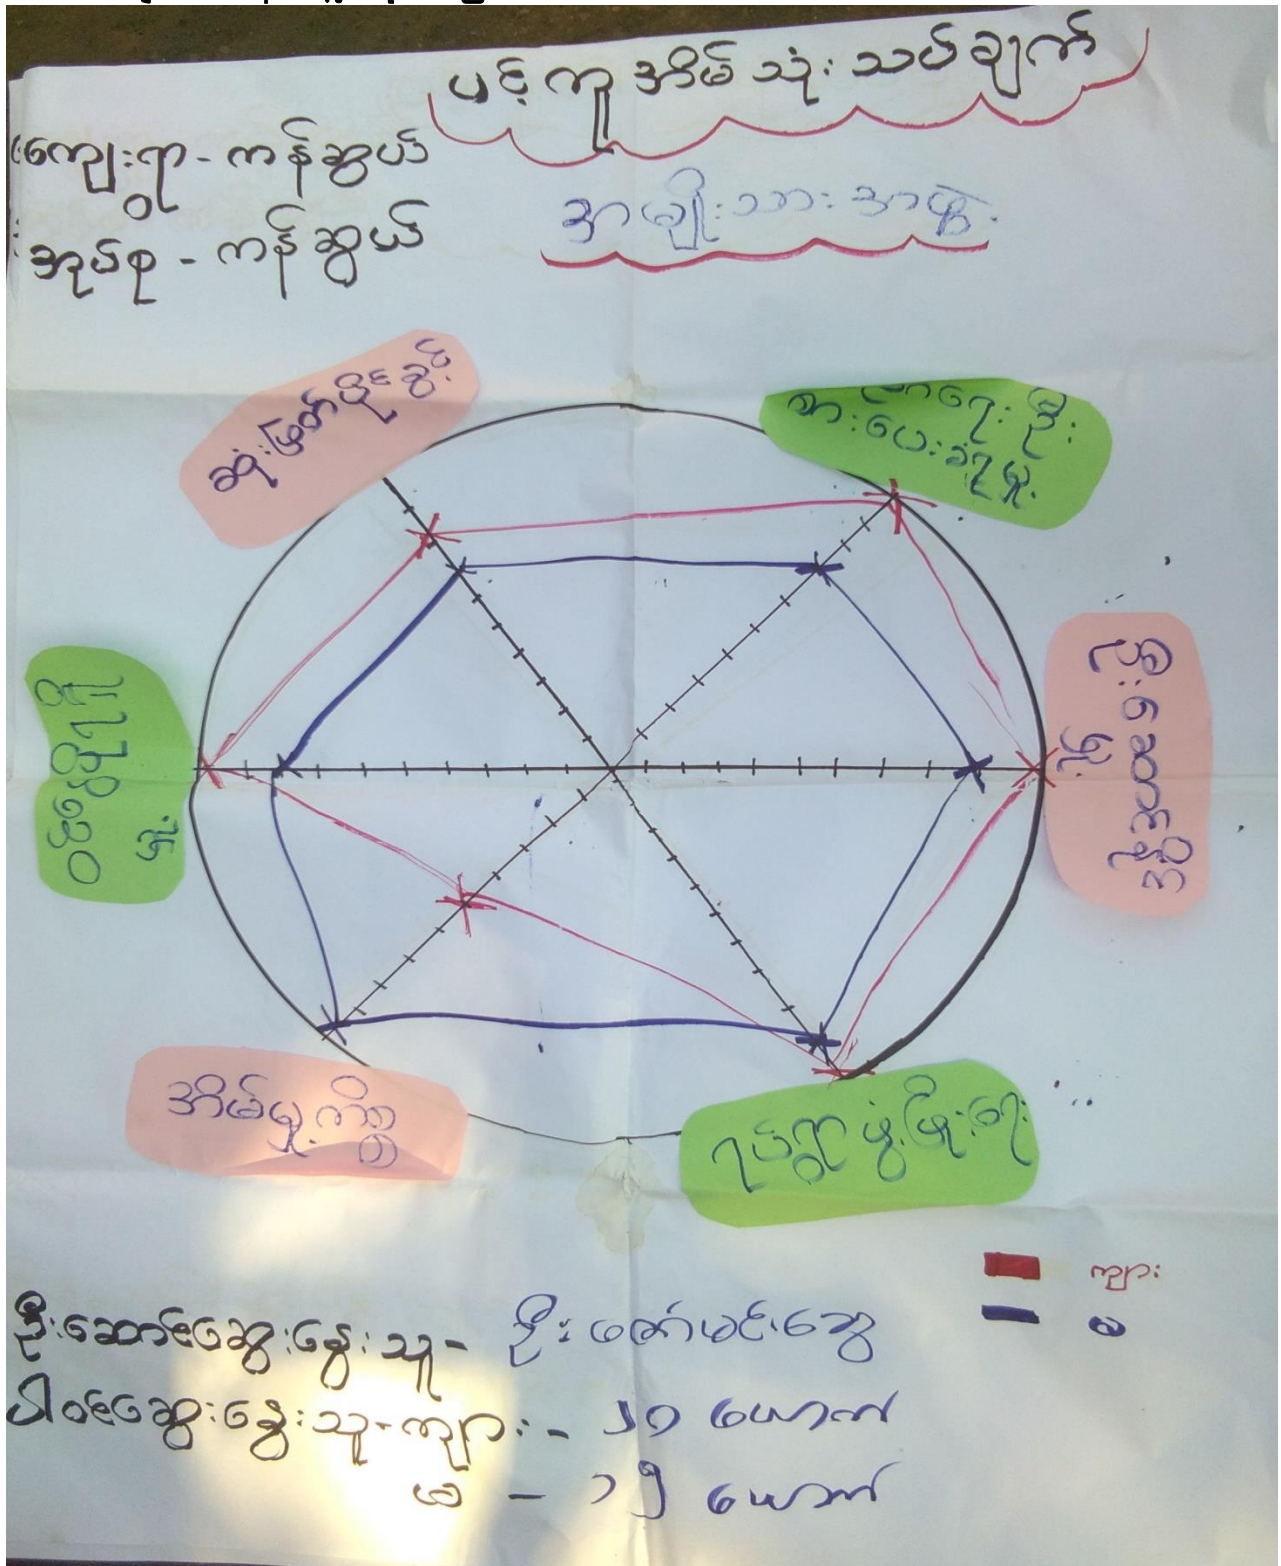 ပင့်ကူအိမ်သုံးသပ်ချက်
ကျေးရွာ - ကန်ဆွယ်
အုပ်စု - ကန်ဆွယ်
အမျိုးသားအဖွဲ့
ဆုံးဖြတ်ပိုင်ခွင့်
စားပေးခံရမှု
ဦးဆောင်နိုင်
မှု
ဝင်ငွေရရှိ
မှု
အိမ်မှုကိစ္စ
ရပ်ရွာဖွံ့ဖြိုးရေး
ကျား
မ
ဦးဆောင်ဆွေးနွေးသူ - ဦးဇော်မင်းဆွေ
ပါဝင်ဆွေးနွေးသူ - ကျား - ၂၁ ယောက်
မ - ၁၅ ယောက်